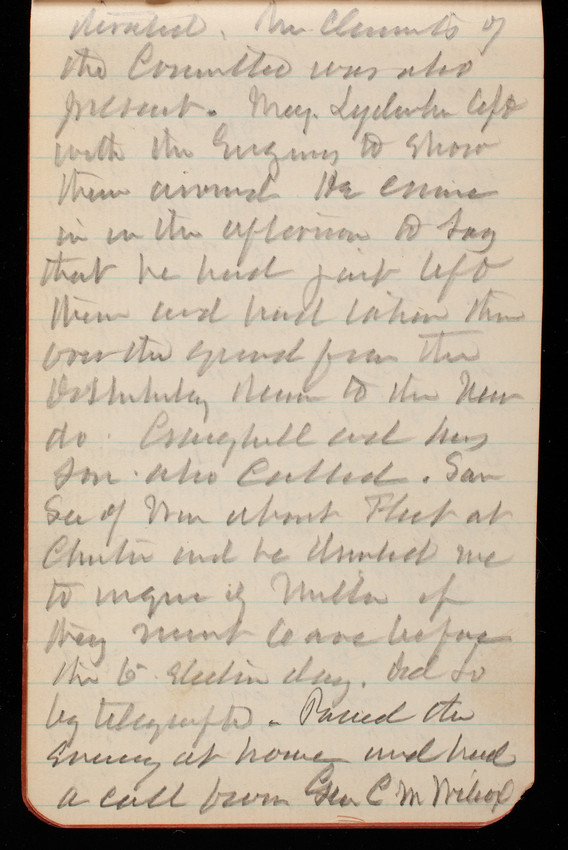 Mr Clements of
the Committee was also
present. Maj. Lydecker left
with the Engrs to show
them around He came
in in the afternoon to say
that he had just left
them and had taken them
over the ground from the
dam to the new
do. Craighill and his
son also called. Saw
Sec of War about Fleet at
Chester and he directed me
to inquire of Miller if
they must leave before
the 6 Election day. Did so
by telegraph. Passed the
Evening at home and had
a call from Gen C M Wilcox